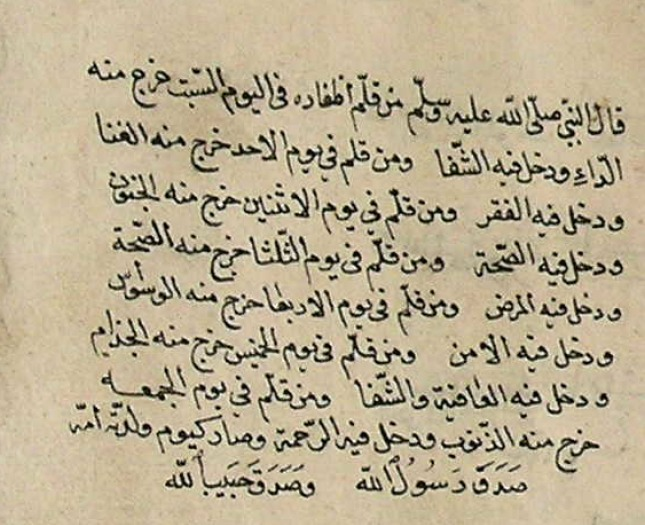 قال النبي صلى الله عليه وسلم من قلّم أظفاره فى اليوم السّبت خرج منه
الدّاء ودخل فيه الشّفا ومن قلم فى يوم الاحد خرج منه الغنا
ودخل فيه الفقر ومن قلّم فى يوم الاثنين خرج منه الجنون
ودخل فيه الصّحة ومن قلّم فى يوم الثّلثا خرج منه الصّحة
ودخل فيه المرض ومن قلّم فى يوم الاربعا خرج منه الوسوس
ودخل فيه الامن ومن قلّم فى يوم الخميس خرج منه الجذام
ودخل فيه العافية والشّفا ومن قلّم فى يوم الجمعه
خرج منه الذّنوب ودخل فيه الرّحمة وصار كيوم ولدته امّه
صَدَقَ رَسُولُ الله وصَدَقَ حَبَيبُ الله